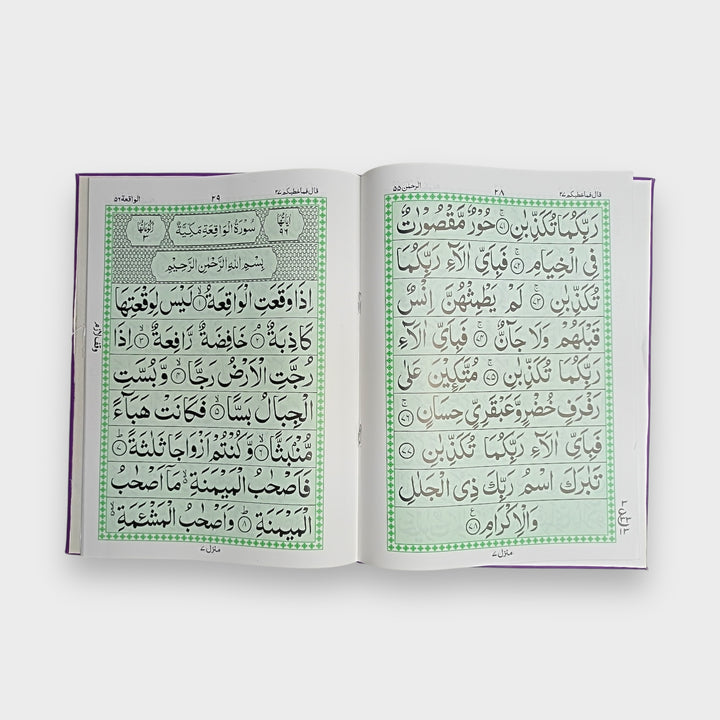 قال فما خطبكم ٢٧
٢٨
الرحمٰن ٥٥
رَبِّكُمَا تُكَذِّبٰنِ ﴿٧١﴾ حُوْرٌ مَّقْصُوْرٰتٌ
فِی الْخِیَامِ ﴿٧٢﴾ فَبِاَیِّ اٰلَآءِ رَبِّكُمَا
تُكَذِّبٰنِ ﴿٧٣﴾ لَمْ یَطْمِثْهُنَّ اِنْسٌ
قَبْلَهُمْ وَلَا جَآنٌّ ﴿٧٤﴾ فَبِاَیِّ اٰلَآءِ
رَبِّكُمَا تُكَذِّبٰنِ ﴿٧٥﴾ مُتَّكِـِٕیْنَ عَلٰی
رَفْرَفٍ خُضْرٍ وَّعَبْقَرِیٍّ حِسَانٍ ﴿٧٦﴾
فَبِاَیِّ اٰلَآءِ رَبِّكُمَا تُكَذِّبٰنِ ﴿٧٧﴾
تَبٰرَكَ اسْمُ رَبِّكَ ذِی الْجَلٰلِ
وَالْاِكْرَامِ ﴿٧٨﴾
منزل ٧
قال فما خطبكم ٢٧
٢٩
الواقعة ٥٦
اٰیَاتُهَا ٩٦
سُوْرَةُ الْوَاقِعَةِ مَكِّیَّةٌ
رُكُوْعَاتُهَا ٣
بِسْمِ اللّٰهِ الرَّحْمٰنِ الرَّحِیْمِ
اِذَا وَقَعَتِ الْوَاقِعَةُ ﴿١﴾ لَیْسَ لِوَقْعَتِهَا
كَاذِبَةٌ ﴿٢﴾ خَافِضَةٌ رَّافِعَةٌ ﴿٣﴾ اِذَا
رُجَّتِ الْاَرْضُ رَجًّا ﴿٤﴾ وَّبُسَّتِ
الْجِبَالُ بَسًّا ﴿٥﴾ فَكَانَتْ هَبَآءً
مُّنْۢبَثًّا ﴿٦﴾ وَّكُنْتُمْ اَزْوَاجًا ثَلٰثَةً ﴿٧﴾
فَاَصْحٰبُ الْمَیْمَنَةِ مَاۤ اَصْحٰبُ
الْمَیْمَنَةِ ﴿٨﴾ وَاَصْحٰبُ الْمَشْـَٔمَةِ
منزل ٧